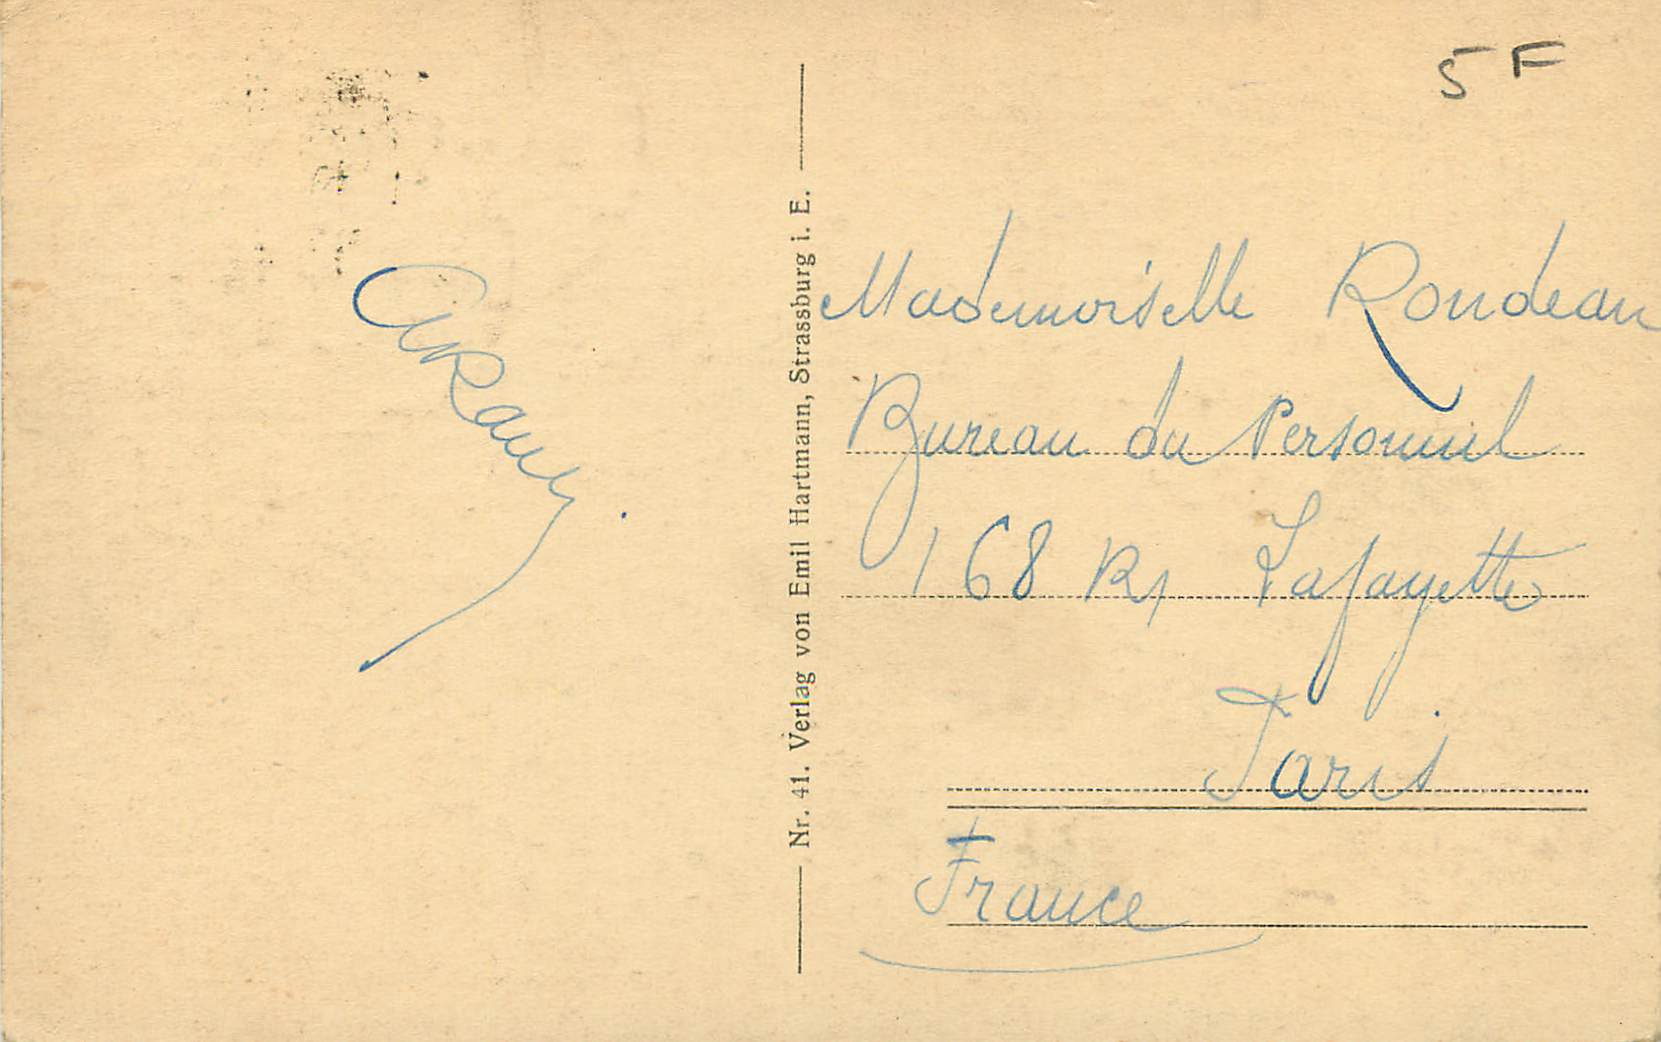 5 F
Nr. 41. Verlag von Emil Hartmann, Strassburg i. E.
Mademoiselle Rondeau
Bureau du Personnel
168 R, Lafayette
Paris
France